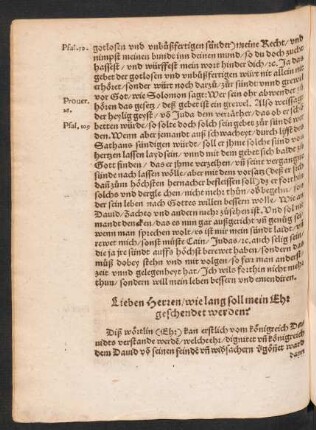 Psal. 50.
gotlosen vnd vnbüßfertigen sünder) meine Recht/ vnd
nimpst meinen bunde inn deinen mund/ so du doch zucht
hassest/ vnd würffest mein wort hinder dich/ ꝛc. Ja das
gebet der gotlosen vnd vnbüßfertigen würt nit allein nit
erhöret/ sonder würt noch darzů/ zůr sünde vnd grewel
vor Got/ wie Solomon sagt: Wer sein ohr abwender zů
Prouer.
28.
hören das gesetz/ deß gebet ist ein grewel. Also weissagt
der heylig geyst/ võ Juda dem verräther/ das ob er schon
Psal. 109
betten würde/ so solte doch solch sein gebet zůr sünde wer-
den. Wenn aber jemandt auß schwacheyt/ durch lyst des
Sathans sündigen würde/ soll er jhme solche sünd von
hertzen lassen laydsein/ vnnd mit dem gebet sich balde zů
Gott finden/ das er jhme verzeihen/ vñ seine vergangene
sünde nach lassen wölle/ aber mit dem vorsatz (deß er sich
dañ zum höchsten hernacher befleissen soll) dz er fort hin
solchs vnd dergleichen nicht mehr thůn/ vnd
der sein leben nach Gottes willen bessern wolle. Wie an
Dauid/ Zacheo vnd andern mehr zůsehen ist. Vnd soll nie
mandt dencken/ das es nun gar außgericht vñ genůg sey/
wenn man sprechen wolt/ es ist mit leid/ vnd ist mit an
rewet mich/ sonst müste Cain/ Judas/ ꝛc. auch selig sein/
die ja jre sünde auffs höchst berewet haben/ sondern das
můß dobey stehn vnd mit volgen/ so fern man anderst
zeyt vnnd gelegenheyt hat/ Ich wils forthin nicht mehr
thůn/ sondern will mein leben bessern vnd emendiren.
Lieben Herren/ wie lang soll mein Ehr
geschendet werden?
Diß wörtlin (Ehr) kan erstlich vom königreich Da-
uidts verstande werdẽ/ welchs ehr/ dignitet vñ königreich
dem Dauid võ seinen feindẽ vñ widsachern vgöñet ward